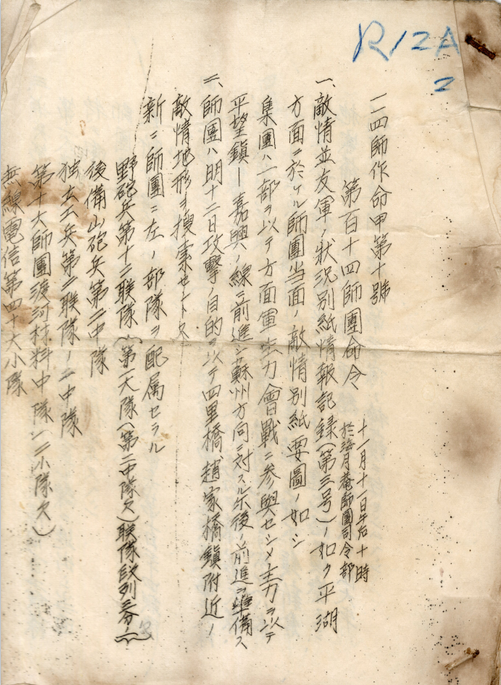 R12A
2
一一四師作命甲第十號
第百十四師團命令
十一月十一日午后十時
於海月菴師團司令部
一、敵情並友軍ノ狀況別紙情報記錄(第三号)ノ如ク平湖
方面ニ於ケル師團当面ノ敵情別紙要圖ノ如シ
集團ハ一部ヲ以テ方面軍主力ノ會戰ニ參與セシメ主力ヲ以テ
平望鎮―嘉興ノ線ニ前進シ蘇州方向ニ対スル尔後ノ前進ヲ準備ス
二、師團ハ明十二日攻擊ノ目的ヲ以テ四里橋趙家橋鎮附近ノ
敵情地形ヲ搜索セントス
新ニ師團ニ左ノ部隊ヲ配属セラル
野砲兵第十二聯隊(第一大隊(第二中隊欠)聯隊段列三分ノ一)
後備山砲兵第二中隊
独立工兵第二聯隊ノ一中隊
第十六師團渡河材料中隊(一小隊欠)
無線電信第四十六小隊